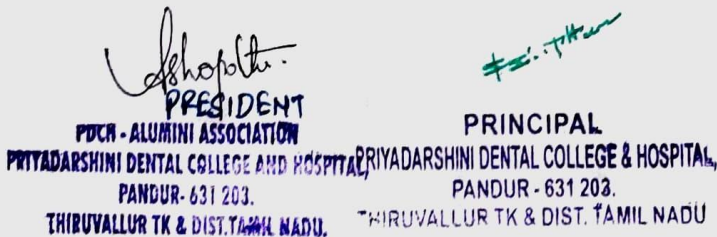 PRESIDENT
PDCH - ALUMINI ASSOCIATION
PRIYADARSHINI DENTAL COLLEGE AND HOSPITAL,
PANDUR- 631 203.
THIRUVALLUR TK & DIST.TAMIL NADU.
PRINCIPAL
PRIYADARSHINI DENTAL COLLEGE & HOSPITAL,
PANDUR - 631 203.
THIRUVALLUR TK & DIST. TAMIL NADU